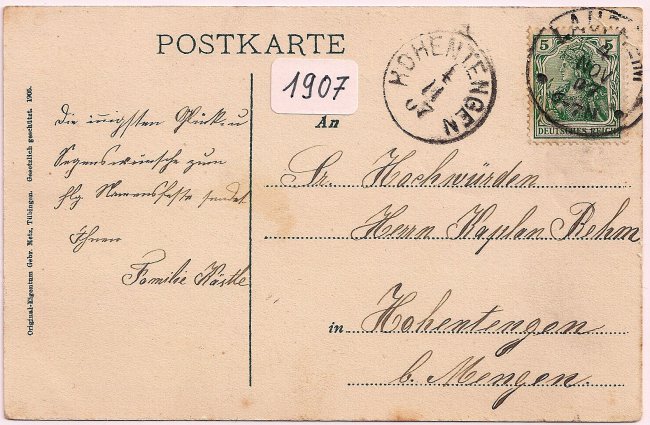 POSTKARTE
1907
HOHENTENGEN
4
11
07
LAUPHEIM
4
NOV
07
5 5
DEUTSCHES REICH
Original-Eigentum Gebr. Metz, Tübingen. Gesetzlich geschützt. 1905.
Die innigsten Glück u
Segenswünsche zum
hlg Namensfeste sendet
Ihnen
Familie Kästle
An
Sr. Hochwürden
Herrn Kaplan Behm
in Hohentengen
b. Mengen.